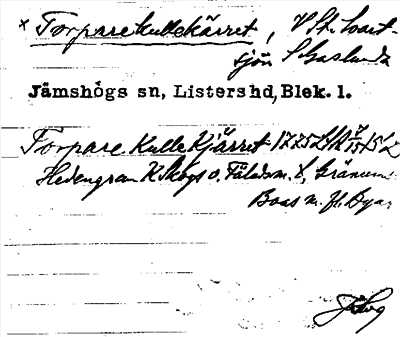 × Torparekullekärret, V St. Svart-
sjön S Gaslunda
Jämshögs sn, Listers hd, Blek. l.
Torpare Kulle Kjärret 1775
Hedengran K Skogs o. Fäladsm. t, Gränum
Boas m. fl. Byar